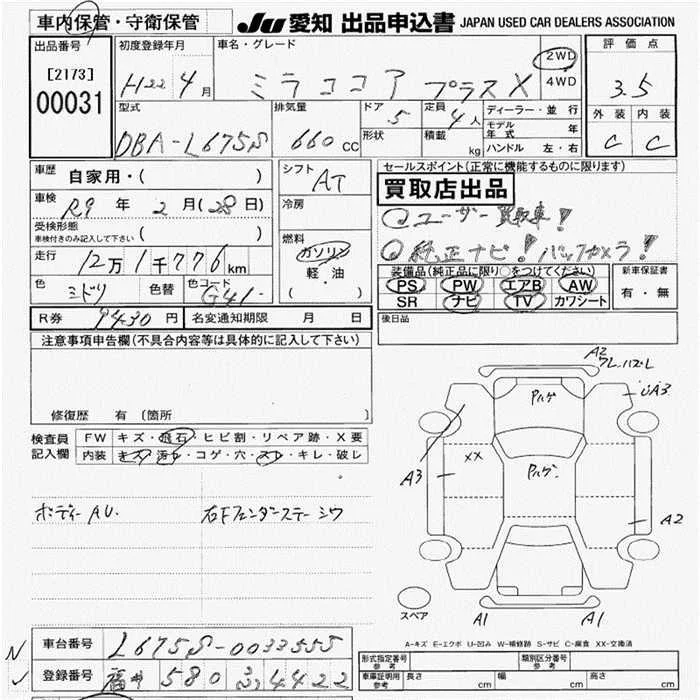 車内保管・守衛保管
JU 愛知 出品申込書 JAPAN USED CAR DEALERS ASSOCIATION
出品番号 [2173] 00031
初度登録年月 H22年4月
車名・グレード ミラココア プラスX
2WD 4WD
評価点 3.5
外装 内装
C C
型式 DBA-L675S
排気量 660cc
ドア 5 形状
定員 4人 積載 kg
ディーラー・並行
モデル年式 年
ハンドル 左・右
車歴 自家用・( )
車検 R9年2月(28日)
受検形態 車検付きのみ記入して下さい ( )
走行 12万1千776km
色 ミドリ 色替 色コード G41
シフト AT
冷房
燃料 ガソリン 軽・油 ( )
セールスポイント(正常に機能するものに限ります)
買取店出品
ユーザー買取車!
純正ナビ!バックカメラ!
装備品(純正品に限り○をつけてください)
PS PW エアB AW
SR ナビ TV カワシート
新車保証書 有・無
R券 9430円 名変通知期限 月 日
後日品
注意事項申告欄(不具合内容等は具体的に記入して下さい)
修復歴 有 〔箇所 〕
検査員記入欄
FW キズ・飛石・ヒビ割・リペア跡・X要
内装 キズ・汚れ・コゲ・穴・スレ・キレ・破レ
ボディーAU. 右Fフェンダーステーシワ
A2
Pハゲ
A3
XX
A3
Pハゲ
A2
スペア
A1 A1
A-キズ E-エクボ U-凹み W-補修跡 S-サビ C-腐食 XX-交換済
車台番号 L675S-0033555
登録番号 福井 580 る4422
形式指定番号 参考 類別区分番号 参考
車庫証明用 参考 長さ 幅 高さ cm